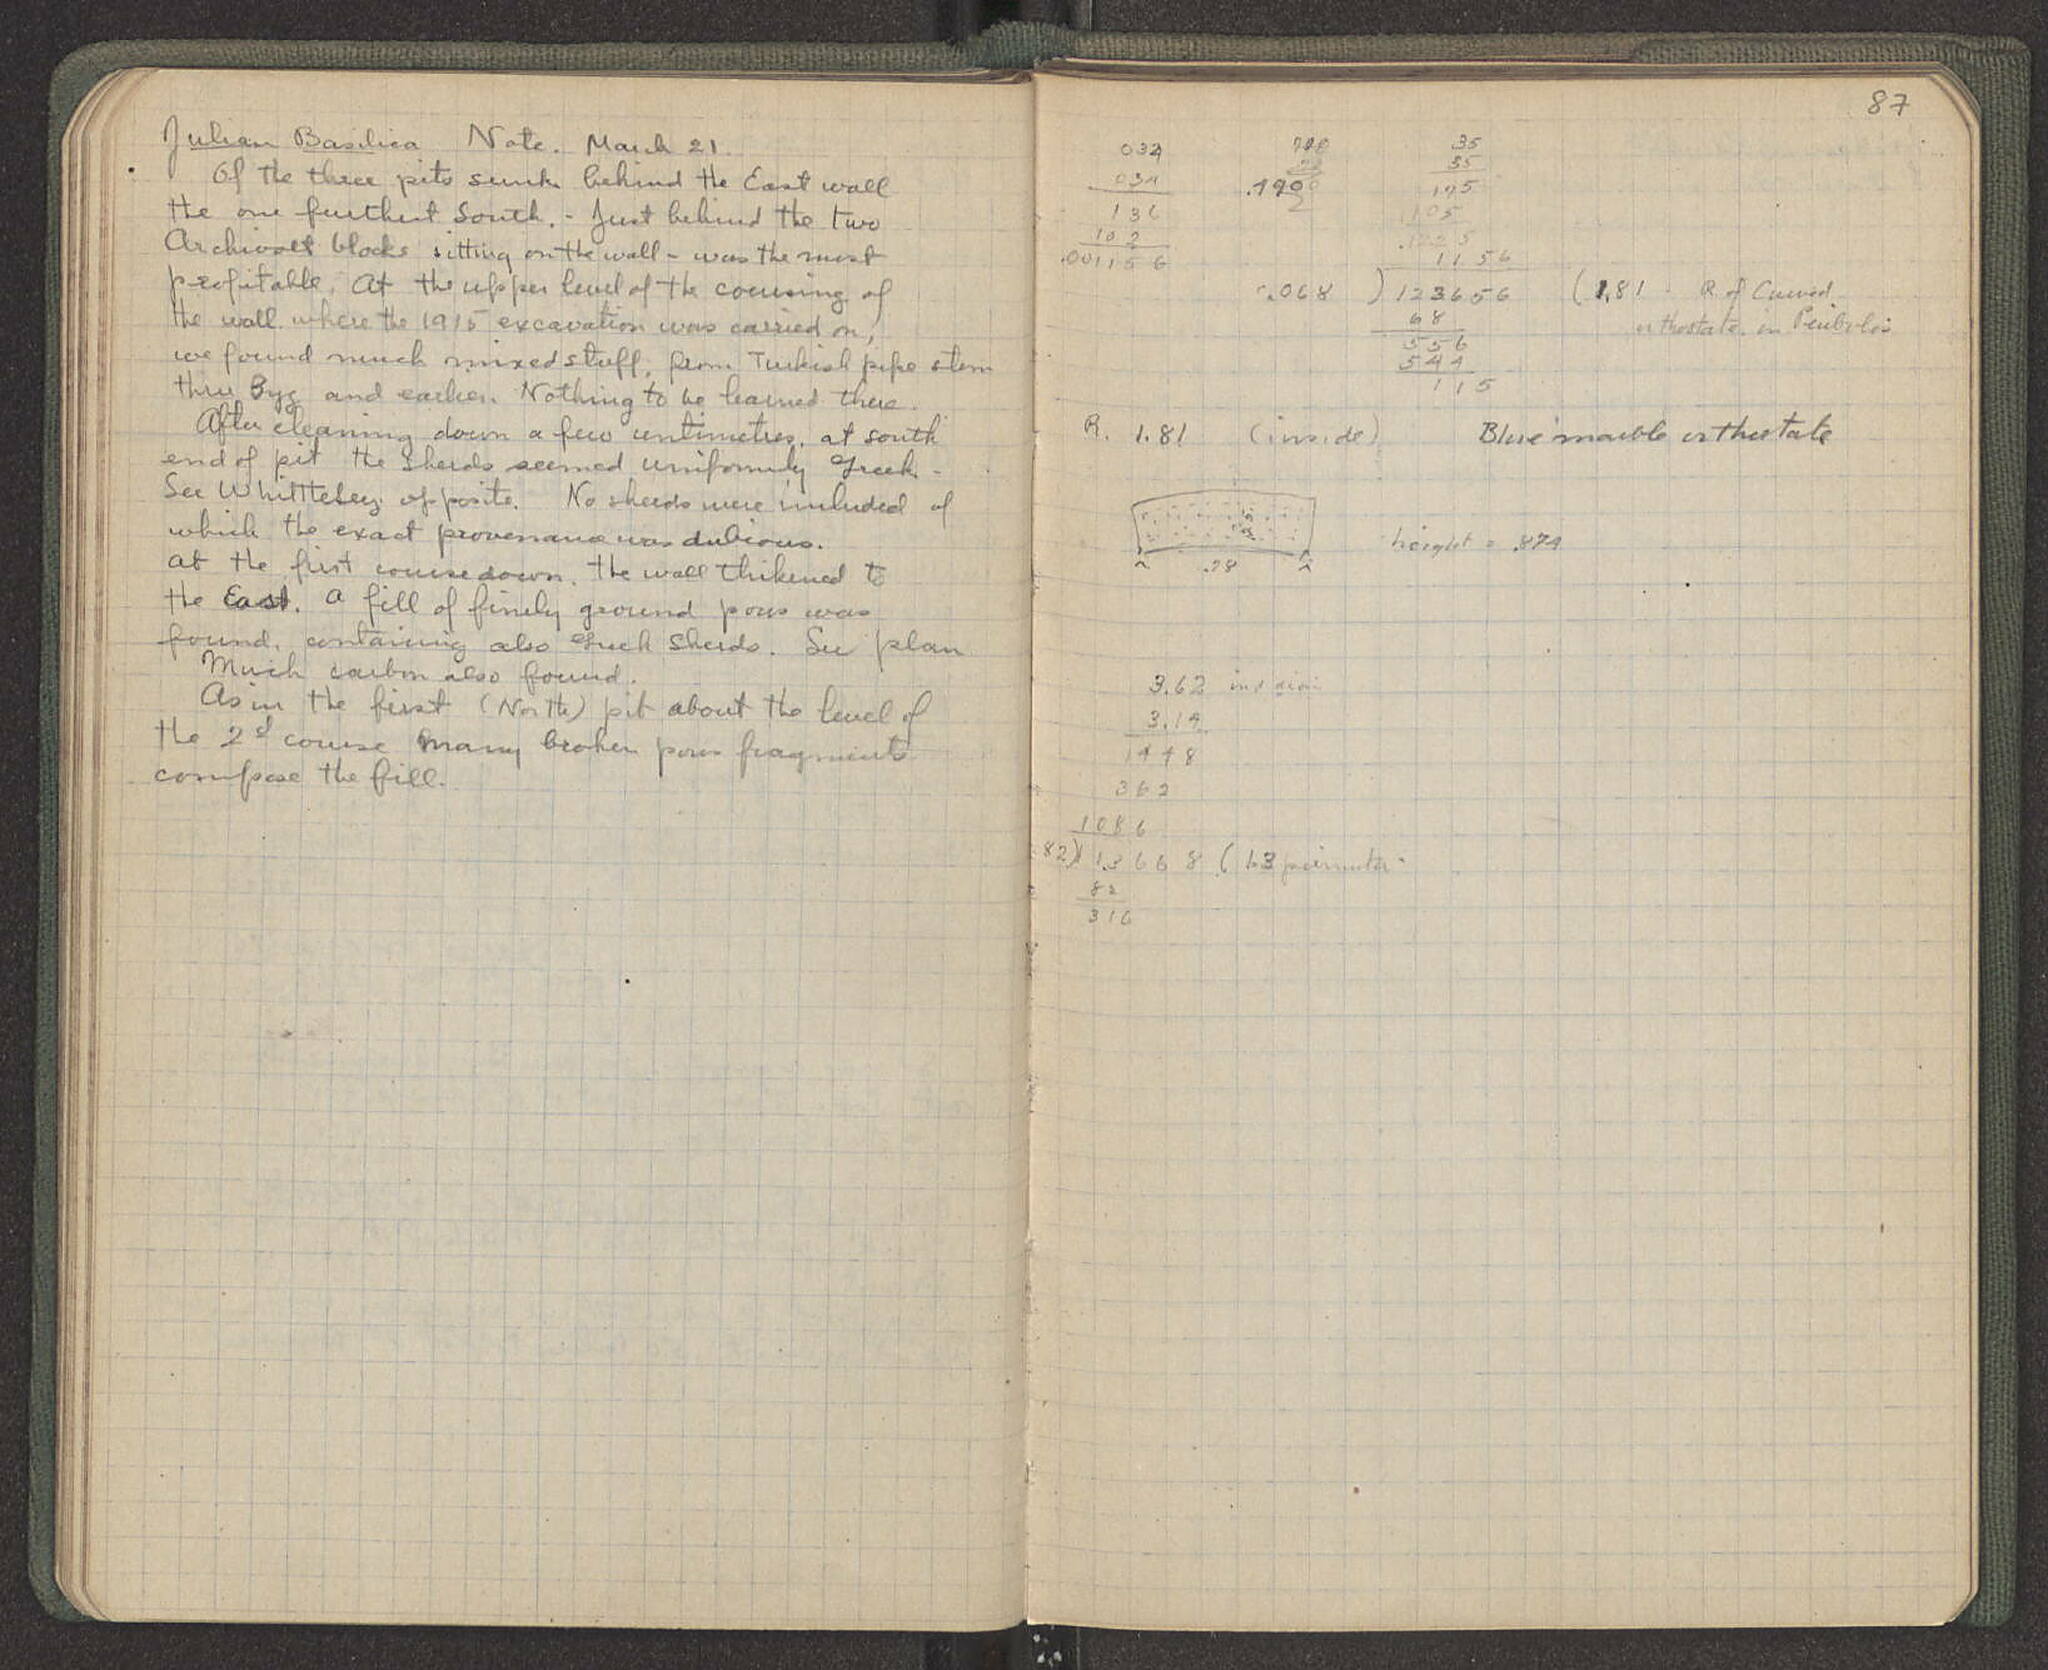 Julian Basilica Note. March 21.
Of the three pits sunk behind the East wall
the one furthest South. - Just behind the two
Archivolt blocks sitting on the wall - was the most
profitable. At the upper level of the coursing of
the wall where the 1915 excavation was carried on,
we found much mixed stuff, from Turkish pipe stem
thru Byz and earlier. Nothing to be learned there.
After cleaning down a few centimetres, at south
end of pit the sherds seemed uniformly Greek -
See Whittlesey opposite. No sherds were included of
which the exact provenance was dubious.
At the first course down, the wall thickened to
the East. A fill of finely ground poros was
found, containing also Greek sherds. See plan
Much carbon also found.
As in the first (North) pit about the level of
the 2d course many broken poros fragments
compose the fill.
87
034
034
136
102
.001156
.1900
35
35
175
105
.1225
11 56
.068 ) 123656 ( 1.81 R of Curved
orthostate in Peribolos
68
556
544
115
R. 1.81 (inside) Blue marble orthostate
.78
height = .874
3.62
3.14
1448
362
1086
82) 13668 ( 13 perimeter
82
316